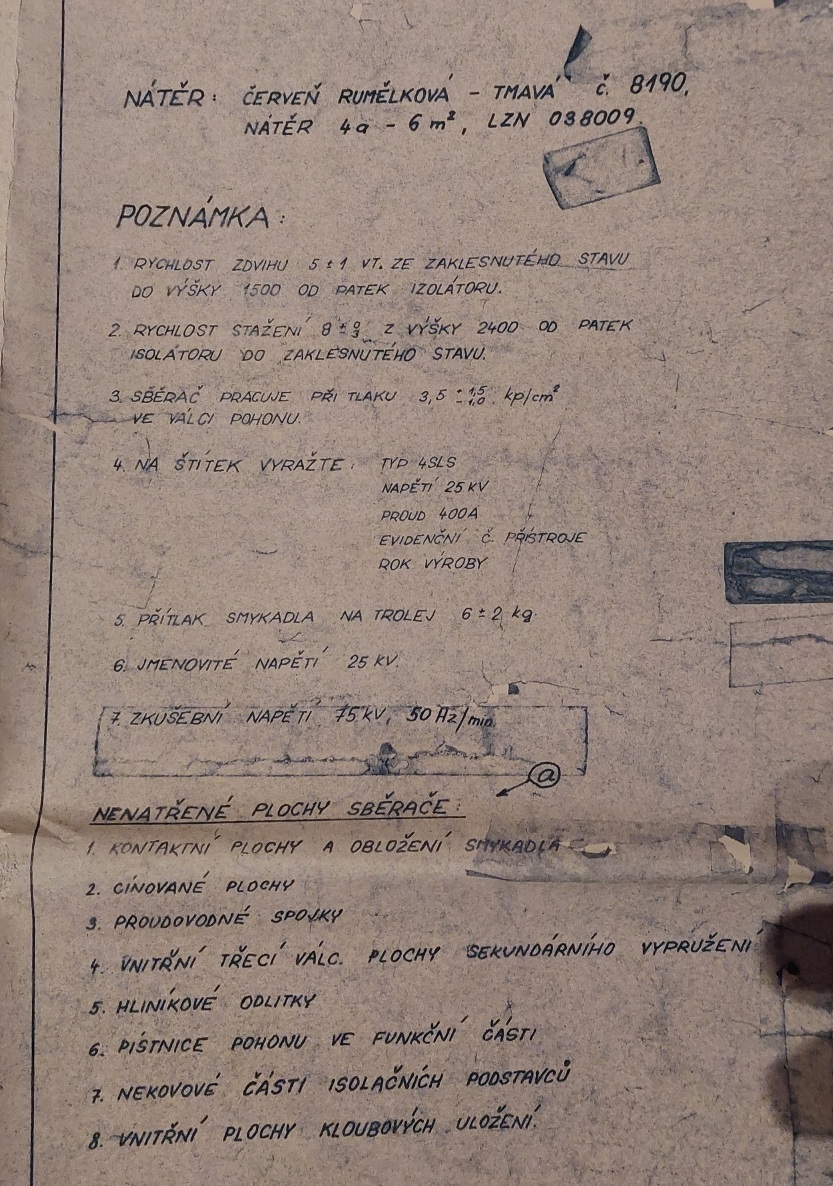 NÁTĚR: ČERVEŇ RUMĚLKOVÁ - TMAVÁ č. 8190,
NÁTĚR 4a - 6 m², LZN 038009.
POZNÁMKA:
1. RYCHLOST ZDVIHU 5 ± 1 VT. ZE ZAKLESNUTÉHO STAVU
DO VÝŠKY 1500 OD PATEK IZOLÁTORU.
2. RYCHLOST STAŽENÍ 8 ± 0/3 Z VÝŠKY 2400 OD PATEK
ISOLÁTORU DO ZAKLESNUTÉHO STAVU.
3. SBĚRAČ PRACUJE PŘI TLAKU 3,5 + 1,5 - 1,0 kp/cm²
VE VÁLCI POHONU.
4. NA ŠTÍTEK VYRAŽTE: TYP 4SLS
NAPĚTÍ 25 KV
PROUD 400A
EVIDENČNÍ Č. PŘÍSTROJE
ROK VÝROBY
5. PŘÍTLAK SMYKADLA NA TROLEJ 6 ± 2 kg.
6. JMENOVITÉ NAPĚTÍ 25 KV.
7. ZKUŠEBNÍ NAPĚTÍ 75 kV, 50 Hz/min
a
NENATŘENÉ PLOCHY SBĚRAČE:
1. KONTAKTNÍ PLOCHY A OBLOŽENÍ SMYKADLA
2. CÍNOVANÉ PLOCHY
3. PROUDOVODNÉ SPOJKY
4. VNITŘNÍ TŘECÍ VÁLC. PLOCHY SEKUNDÁRNÍHO VYPRUŽENÍ
5. HLINÍKOVÉ ODLITKY
6. PÍSTNICE POHONU VE FUNKČNÍ ČÁSTI
7. NEKOVOVÉ ČÁSTI ISOLAČNÍCH PODSTAVCŮ
8. VNITŘNÍ PLOCHY KLOUBOVÝCH ULOŽENÍ.